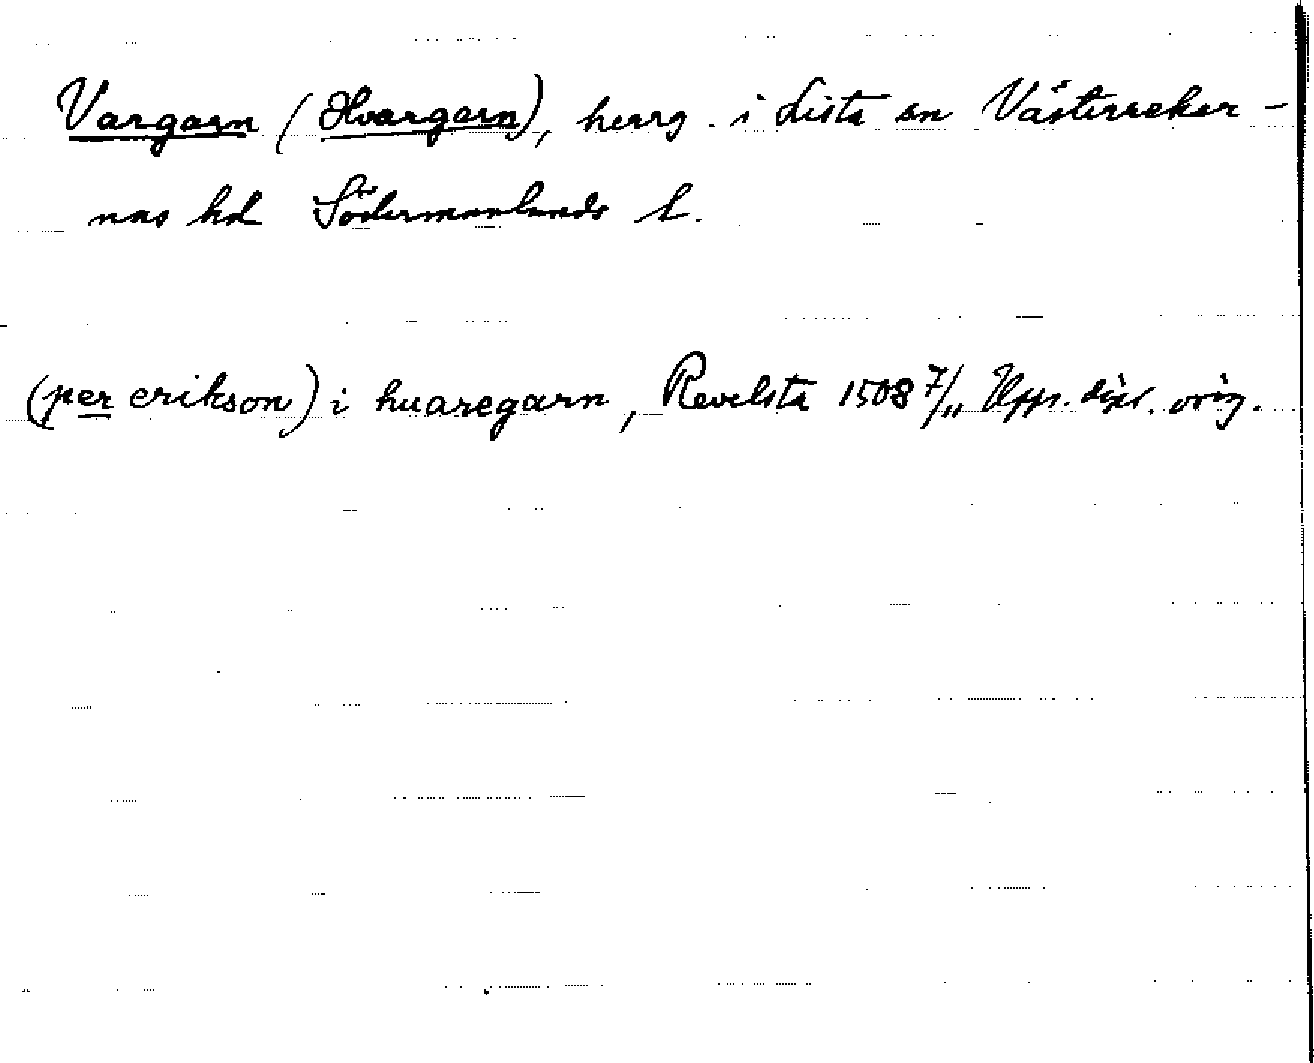 Vargarn (Hvargarn), herrg. i Lista sn Västerreker-
nas hd Södermanlands l.
(per erikson) i huaregarn, Revelsta 1508 7/11 Upps. dipl. orig.